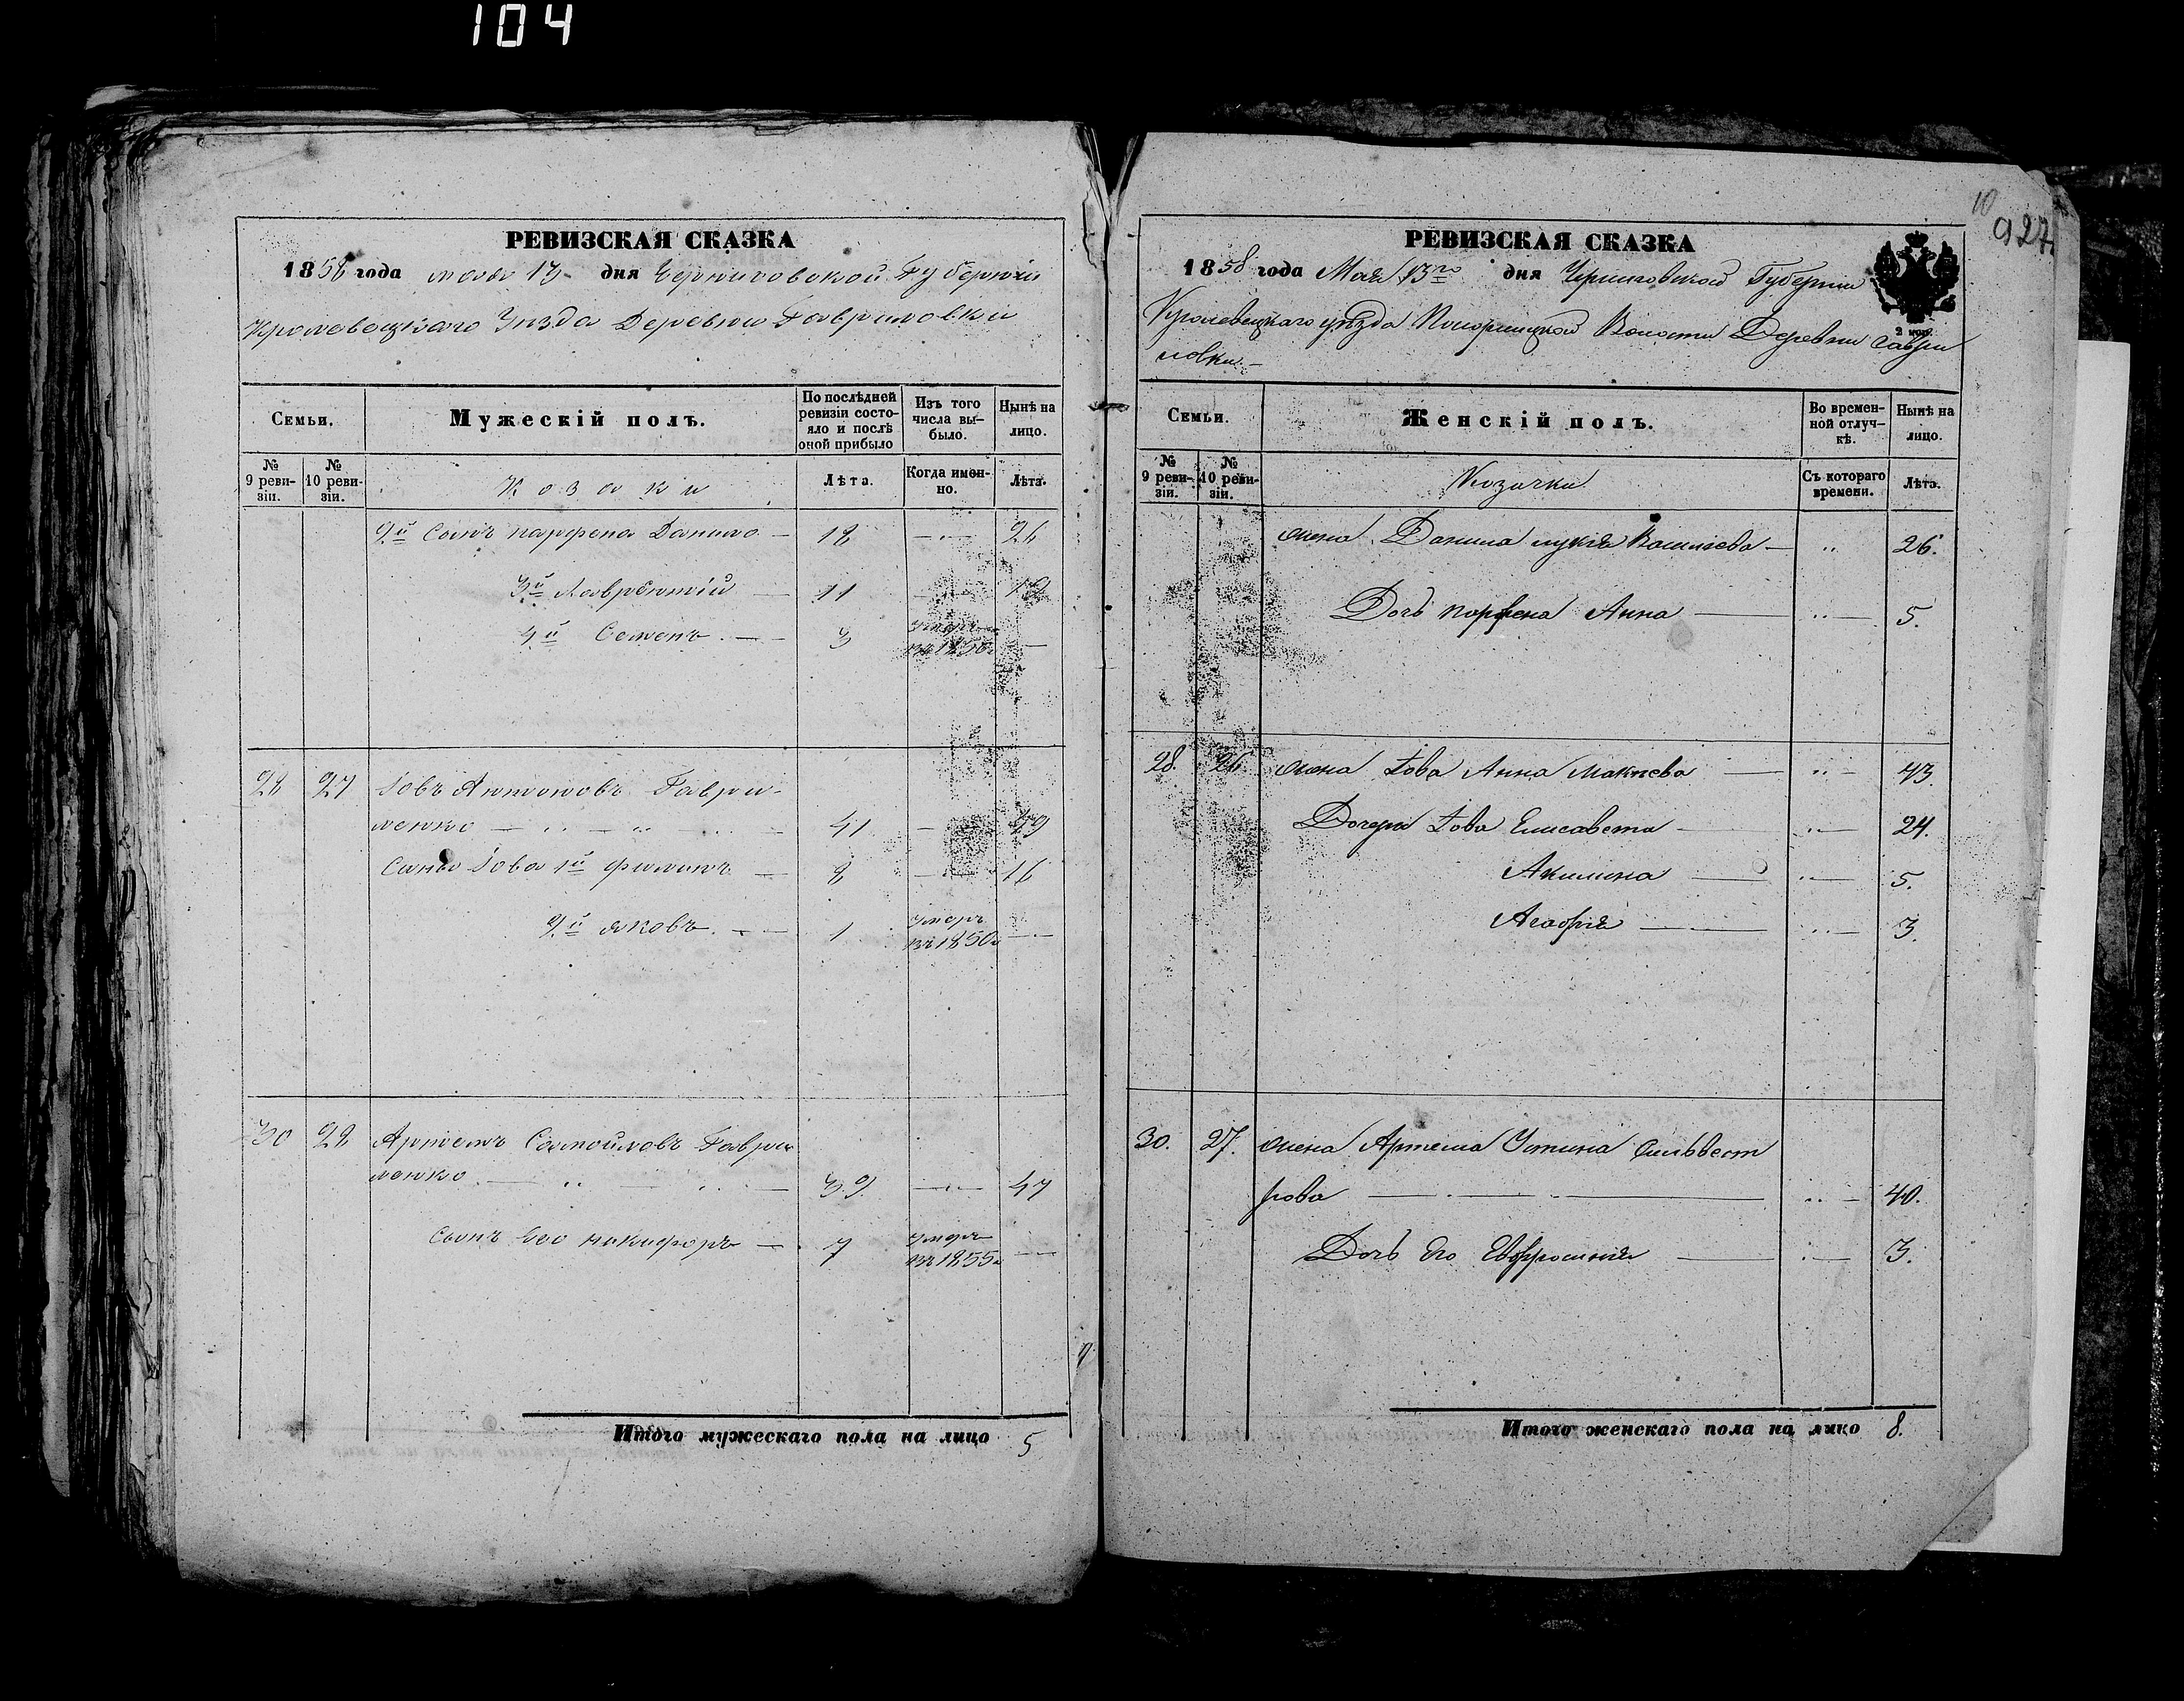 104
РЕВИЗСКАЯ СКАЗКА
1858 года мая 13 дня Черниговской Губернии
Кролевецкаго Уезда Деревни Гавриловки
Семьи.
Мужескій полъ.
По послѣдней ревизіи состояло и послѣ оной прибыло
Изъ того числа выбыло.
Нынѣ на лицо.
№ 9 ревизіи.
№ 10 ревизіи.
Козаки
Лѣта.
Когда именно.
Лѣта.
2й Сынъ парфена Данило — 18 — 26
3й Лаврентій — 11 — 19
4й Семенъ — 3 умеръ въ 1850 —
28 27 Іовъ Антоновъ Гаври-
ленко — 41 — 49
Сыны Іова 1й Филипъ — 8 — 16
2й яковъ — 1 умеръ въ 1850 —
30 28 Артемъ Самойловъ Гаври
ленко — 39 — 47
Сынъ Его никифоръ — 7 умеръ въ 1855 —
Итого мужескаго пола на лицо 5
10
927
РЕВИЗСКАЯ СКАЗКА
1858 года Мая 13го дня Черниговской Губернии
2 коп.
Кролевецкаго уезда Понорницкой Волости Деревни Гаври
ловки.
Семьи.
Женскій полъ.
Во временной отлучкѣ.
Нынѣ на лицо.
№ 9 ревизіи.
№ 10 ревизіи.
Козачки
Съ котораго времени.
Лѣта.
жена Данила лукія Василіева — 26.
Дочь парфена Анна — 5.
28. 26 жена Іова Анна Макѣева — 43.
Дочери Іова Елисавета — 24.
Акилина — 5.
Агафія — 3.
30. 27. жена Артема Устина Сильвест
рова — 40.
Дочь Его Евфросинія — 3.
Итого женскаго пола на лицо 8.